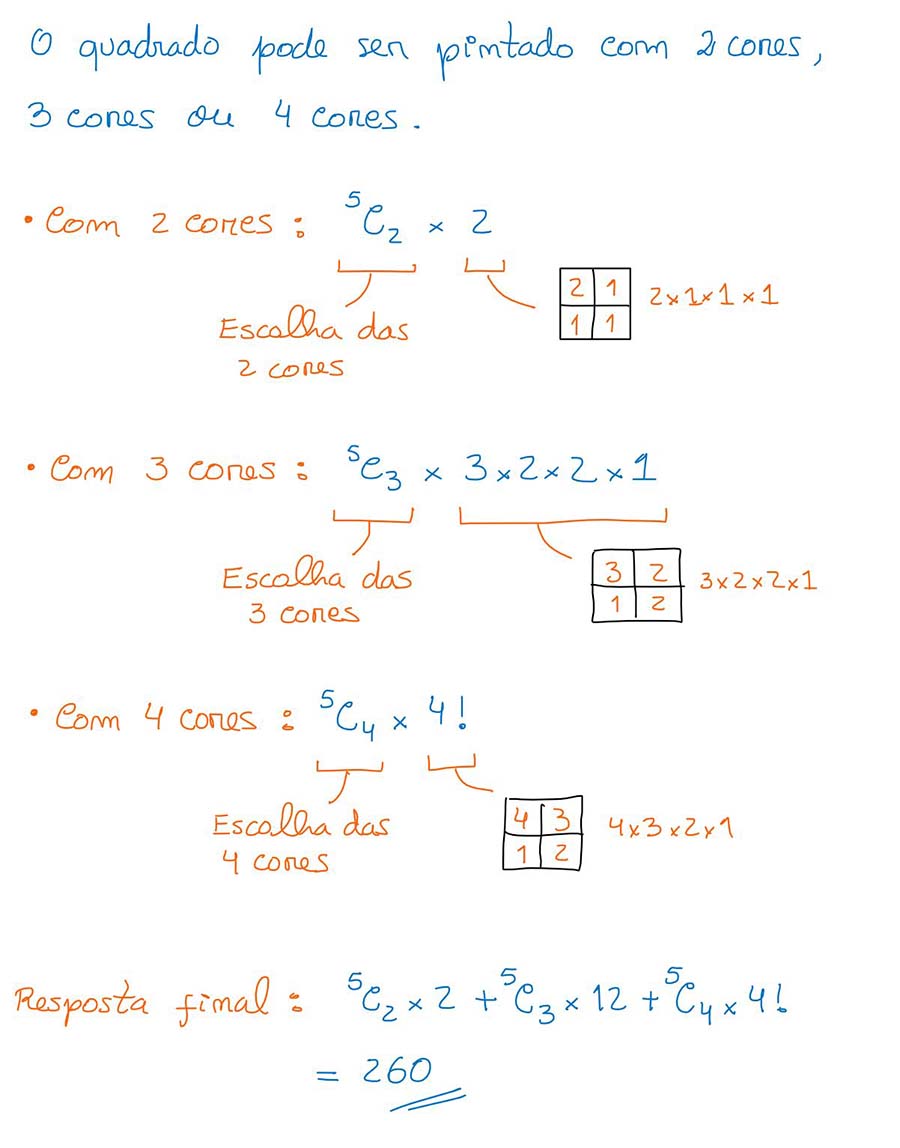 O quadrado pode ser pintado com 2 cores,
3 cores ou 4 cores.
• Com 2 cores : ⁵C₂ × 2
Escolha das
2 cores
2 1
1 1
2×1×1×1
• Com 3 cores : ⁵C₃ × 3×2×2×1
Escolha das
3 cores
3 2
1 2
3×2×2×1
• Com 4 cores : ⁵C₄ × 4!
Escolha das
4 cores
4 3
1 2
4×3×2×1
Resposta final : ⁵C₂ × 2 + ⁵C₃ × 12 + ⁵C₄ × 4!
= 260